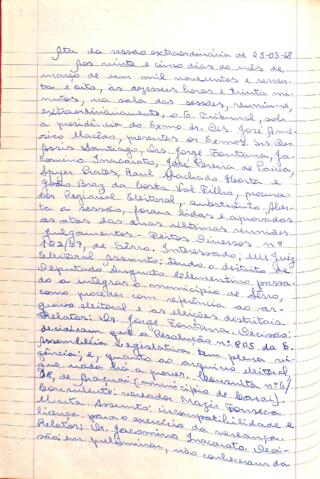 Ata da sessão extraordinária de 25-03-68
Aos vinte e cinco dias do mês de
março de um mil novecentos e sessen-
ta e oito, às dezesseis horas e trinta mi-
nutos, na sala das sessões, reuniu-se,
extraordinàriamente, o E. Tribunal, sob
a presidência do Exmo. Sr. Des. José Amé-
rico Macêdo, presentes os Exmos. Srs. Des.
Assis Santiago, Drs. Jorge Fontana, Ja-
comino Inacarato, José Pereira de Paiva,
Prates, Raul Machado Horta e
João Braz da Costa Val Filho, procura-
dor Regional Eleitoral, substituto. Aber-
ta a sessão, foram lidas e aprovadas
as atas das duas últimas reuniões.
Julgamentos - Feitos Diversos - nº
182/67, de Sêrro. Interessado: MM Juiz
Eleitoral Assunto: tendo o distrito de
Deputado Augusto Clementino passa-
do a integrar o município de Sêrro,
como proceder com referência ao ar-
quivo eleitoral e às eleições distritais.
Relator: Dr. Jorge Fontana. Decisão:
decidiram que a Resolução nº 805 da E.
Assembléia Legislativa tem plena vi-
gência; e, quanto ao arquivo eleitoral
que nada há a prover. Consulta nº 6/
68, de Araçuaí (município de Caraí).
Consulente: vereador Fonseca
Assunto: incompatibilidade e
licença para o exercício da vereança.
Relator: Dr. Jacomino Inacarato. Deci-
são: em preliminar, não conheceram da